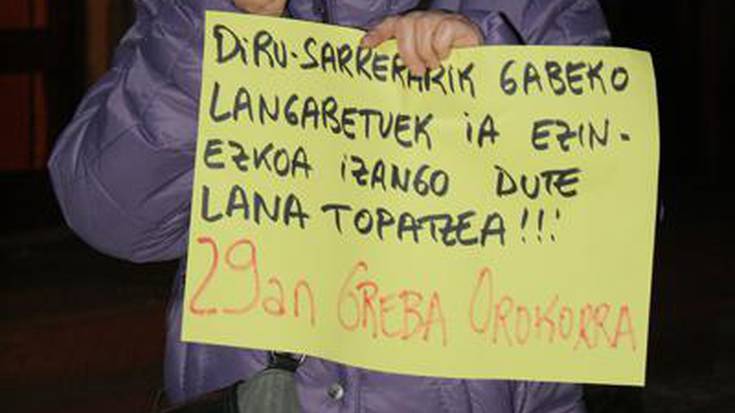 DiRU-SARRERARIK GABEKO
LANGABETUEK iA EZIN-
EZKOA iZANGO DUTE
LANA TOPATZEA!!!
29an GREBA OROKORRA